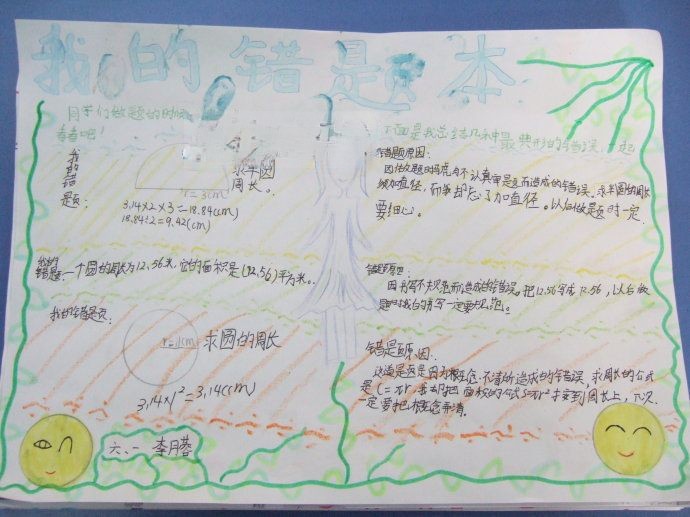 我的错题本
同学们做题的时候
看看吧!
下面是我总结几种最典形的错误,一起
我的错题:
求半圆
周长。
r=3cm
3.14×2×3=18.84(cm)
18.84÷2=9.42(cm)
错题原因:
因做题时马虎,不认真审题而造成的错误。求半圆的周长
须加直径,而我却忘了加直径。以后做题时一定
要细心。
我的
错题:一个圆的周长为12.56米,它的面积是(12.56)平方米。
错题原因:
因书写不规范而造成的错误。把12.56写成
,以后做
题时数的书写一定要规范。
我的错题:
r=1cm
求圆的周长
3.14×1²=3.14(cm)
错题原因:
这道题是因为概念不清所造成的错误,求周长的公式
是C=πr,我却把面积的公式S=πr²用到周长上,下次
一定要把概念弄清。
六、一 李月蓉